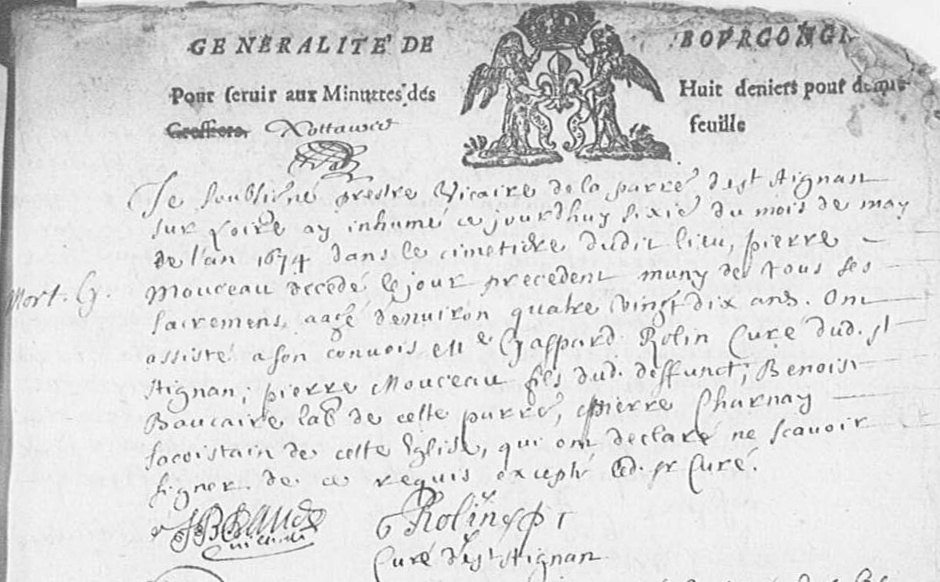 GENERALITE DE BOURGONGN
Pour seruir aux Minuttes des Huit deniers pour demie-
Greffiers, Nottaires feuille
Je soubsigné prestre Vicaire de la parre de st Aignan
sur Loire ay inhumé ce jourdhuy sixie du mois de may
de l'an 1674 dans le cimetiere dudit lieu, pierre
Mort. Monceau decedé le jour precedent muny de tous ses
sacremens, aagé denuiron quatre vingt dix ans. Ont
assisté a son convois Me Gaspard Rolin Curé dud. st
Aignan; pierre Monceau fils dud. deffunct; Benoist
Baucaire lab de cette parre, pierre Charnay
sacristain de cette Eglise, qui ont declaré ne scavoir
signer de ce requis excepté led. sr Curé.
Rolin
Curé de st Aignan